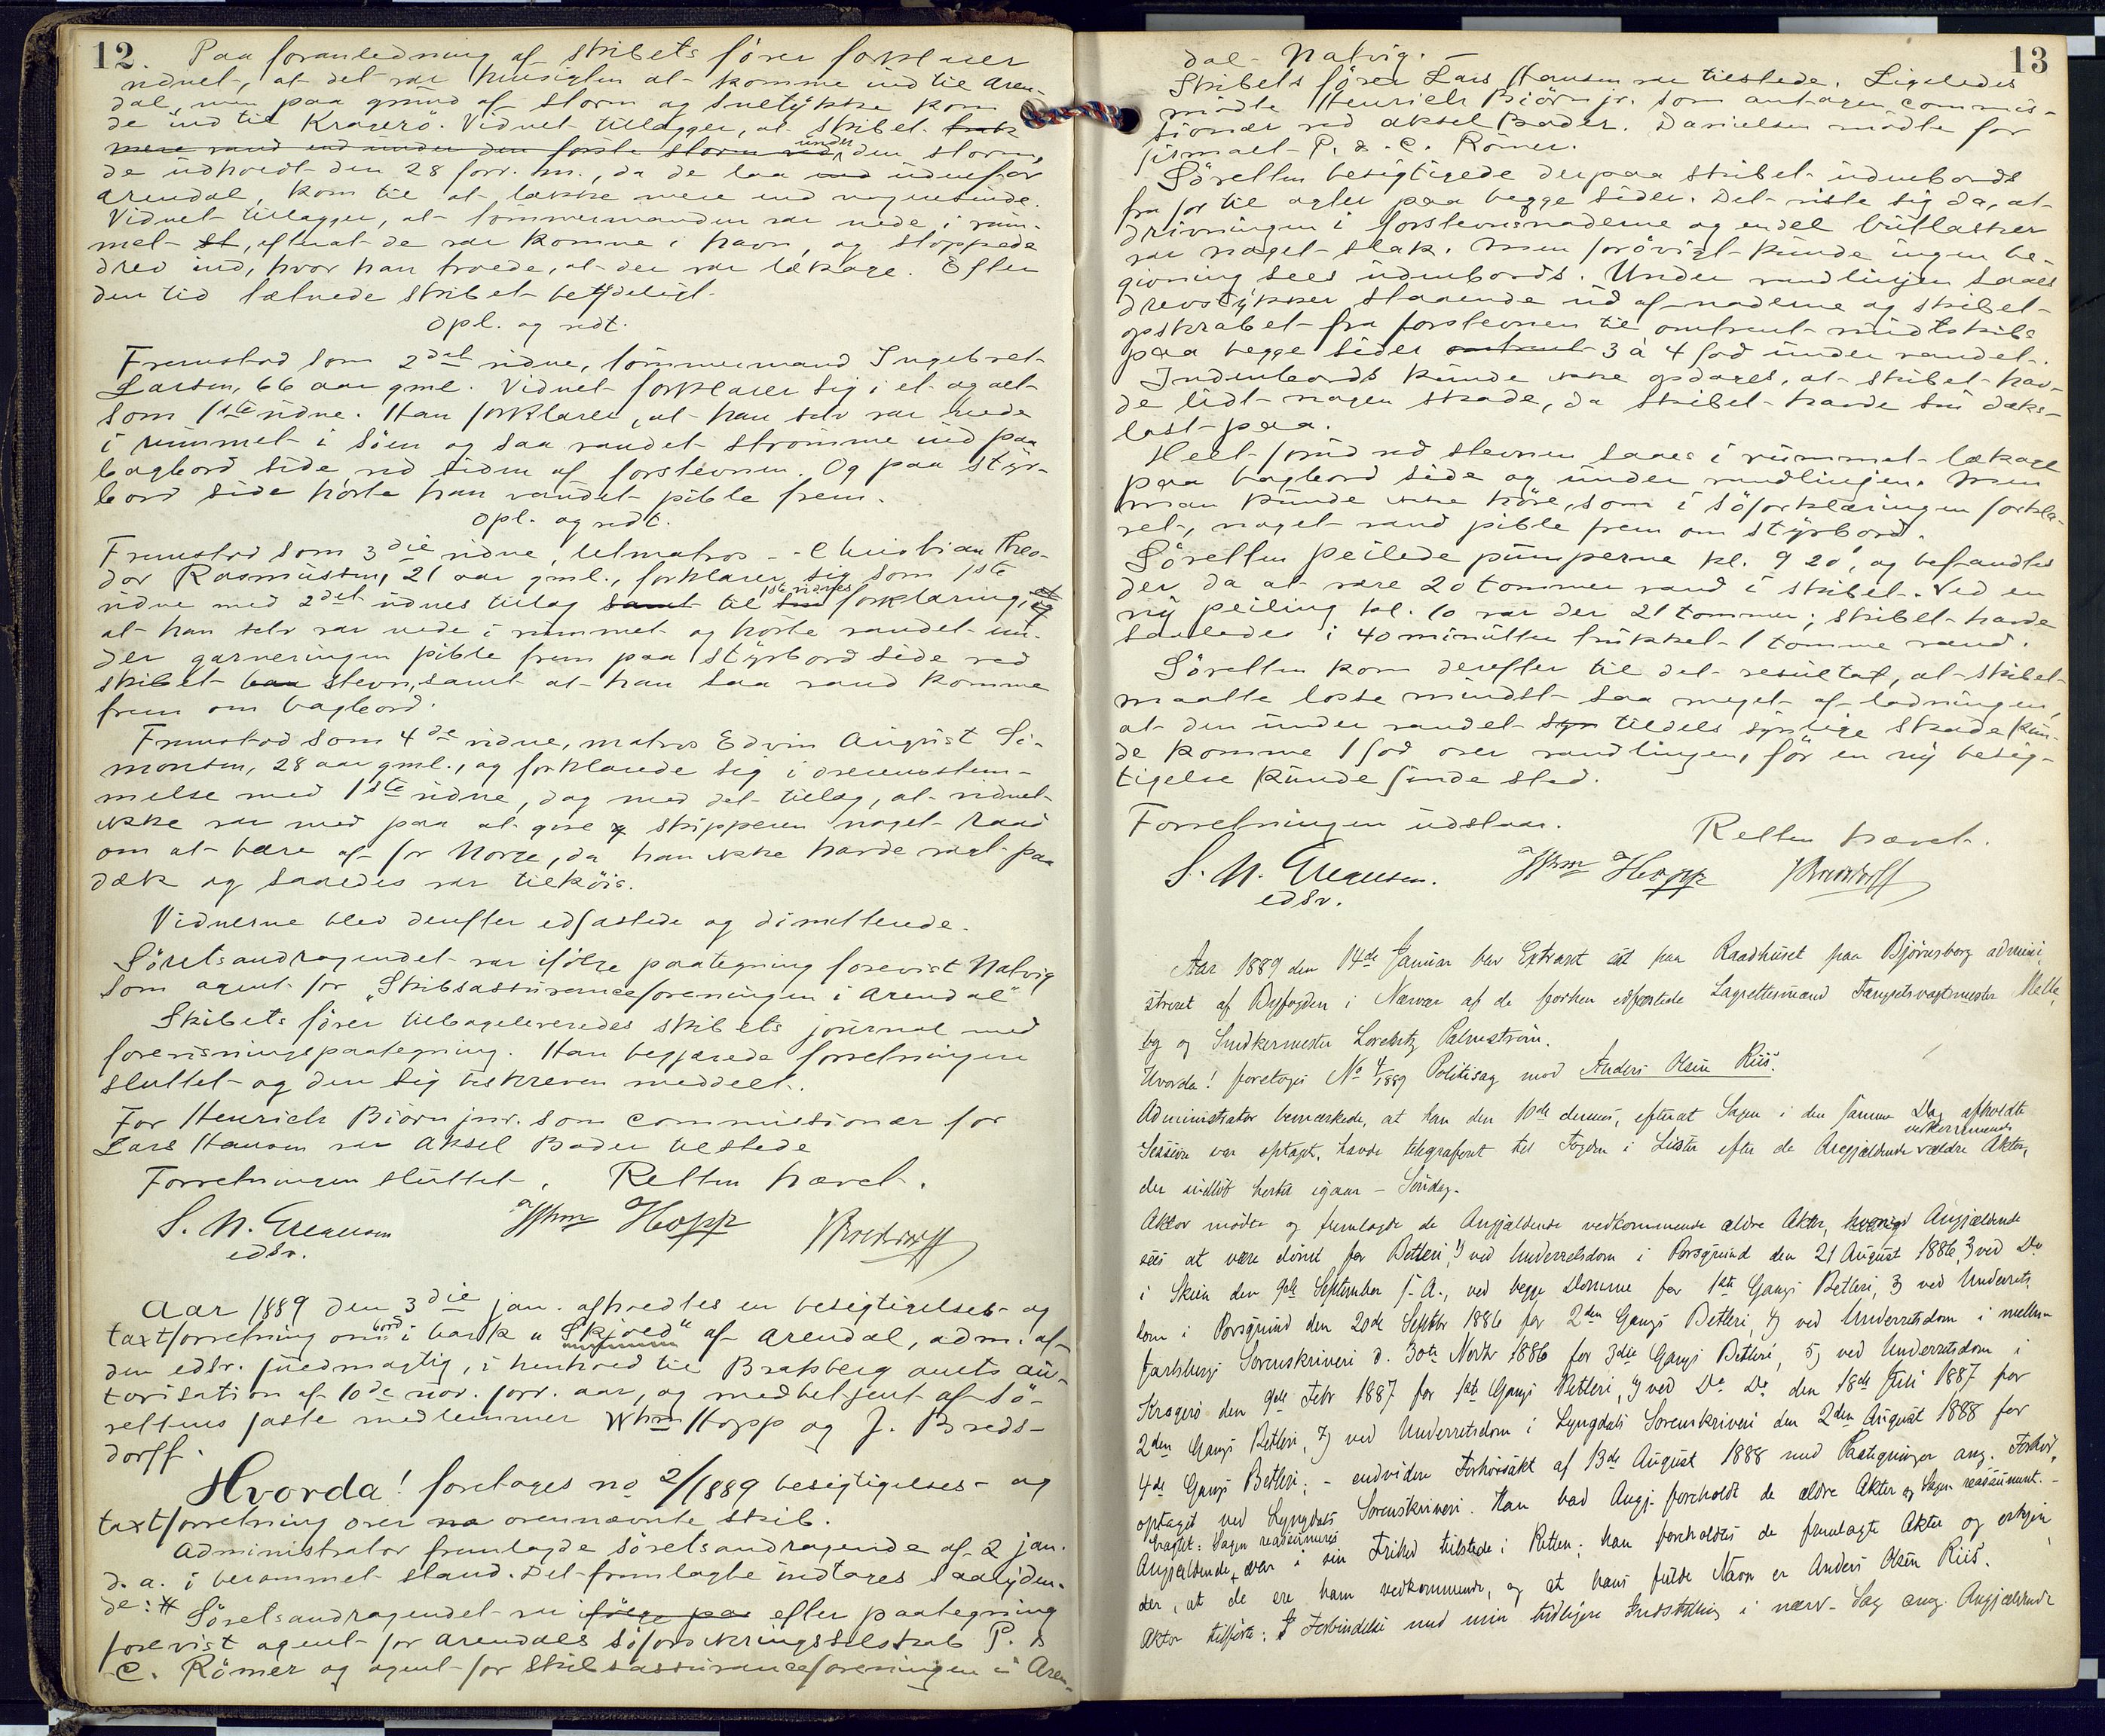 12.
Paa foranledning af skibets fører forklarer
vidnet, at det var hensigten at komme ind til Aren-
dal, men paa grund af storm og snetykke kom
de ind til Kragerö. Vidnet tillægger, at skibet trak
mere vand end under den første storm ved under den storm,
de udholdt den 28 forr. m., da de laa ind udenfor
Arendal, kom til at lække mere end nogensinde.
Vidnet tillægger, at tømmermanden var nede i rum-
met st, efterat de var komne i havn, og stoppede
drev ind, hvor han troede, at der var lækage. Efter
den tid tætnede skibet betydeligt.
Opl. og vedt.
Fremstod som 2det vidne, tömmermand Ingebret
Larsen, 66 aar gml. Vidnet forklarer sig i et og alt
som 1ste vidne. Han forklarer, at han selv var nede
i rummet i søen og saa vandet strømme ind paa
bagbord side ved siden af forstevnen. Og paa styr-
bord side hørte han vandet pible frem.
Opl. og vedt.
Fremstod som 3die vidne, letmatros - Christian Theo-
dor Rasmussen, 21 aar gml., forklarer sig som 1ste
vidne med 2det vidnes tillæg samt til sin 1ste vidnes forklaring, og
at han selv var nede i rummet og hørte vandet un-
der garneringen pible frem paa styrbord side ved
skibet baa stevn, samt at han saa vand komme
frem om bagbord.
Fremstod som 4de vidne, matros Edvin August Si-
monsen, 28 aar gml., og forklarede sig i overensstem-
melse med 1ste vidne, dog med det tillæg, at vidnet
ikke var med paa at give skipperen noget raad
om at bære af for Norge, da han ikke havde vagt paa
dæk og saaledes var tilkøis.
Vidnerne blev derefter edfæstede og dimitterede.
Søretsandragendet var ifølge paategning forevist Natvig
som agent for „Skibsassuranceforeningen i Arendal"
Skibets fører tilbageleveredes skibets journal med
forevisningspaategning. Han begjærede forretningen
sluttet og den sig beskreven meddelt.
For Henrich Biørn jnr. som commissionær for
Lars Hansen var Aksel Bader tilstede
Forretningen sluttet. Retten hævet.
Whm Hopp
edsv.
Aar 1889 den 3die jan. afholdtes en besigtigelses- og
taxtforretning ombord i bark „Skjold" af Arendal, adm. af
den edsv. fuldmægtig, i henhold til Bratsberg amts au-
torisation af 10de nov. forr. aar, og medbetjent af sø-
rettens faste medlemmer Whm Hopp og J. Breds-
dorff.
Hvorda! foretoges no 2/1889 besigtigelses- og
taxtforretning over na ovennævnte skib.
Administrator fremlagde søretsandragende af 2 jan.
d. a. i berammet stand. Det fremlagte indtages saalyden-
de: #
Søretsandragendet var ifølge paa efter paategning
forevist agent for Arendals Søforsikringsselskab P. &
C. Römer og agent for Skibsassuranceforeningen i Aren-
13
dal Natvig. —
Skibets fører Lars Hansen var tilstede. Ligeledes
mødte Henrich Biörn jr. som antagen commis-
sionær ved Aksel Bader. Danielsen mødte for
firmaet P. & C. Römer.
Söretten besigtigede derpaa skibet udenbords
fra for til agter paa begge sider. Det viste sig da, at
drivningen i forstevnsnaderne og endel butlasker
var noget slak. Men forøvrigt kunde ingen be-
givning sees udenbords. Under vandlinjen saaes
drevstykker staaende ud af naderne og skibet
opskrabet fra forstevnen til omtrent midtskibs
paa begge sider omtrent 3 à 4 fod under vandet.
Indenbords kunde ikke opdages, at skibet hav-
de lidt nogen skade, da skibet havde sin dæks-
last paa.
Helt forud ved stevnen saaes i rummet lækage
paa bagbord side og under vandlinjen. Men
man kunde ikke høre, som i søforklaringen forkla-
ret, noget vand pible frem om styrbord.
Søretten peilede pumperne kl. 9 20', og befandtes
der da at være 20 tommer vand i skibet. Ved en
ny peiling kl. 10 var der 21 tommer; skibet havde
saaledes i 40 minutter trukket 1 tomme vand.
Søretten kom derefter til det resultat, at skibet
maatte losse mindst saa meget af ladningen,
at den under vandet syn tildels synlige skade kun-
de komme 1 fod over vandlinjen, før en ny besig-
tigelse kunde finde sted.
Forretningen udstaar.
Retten hævet.
Whm Hopp
edsv.
Aar 1889 den 14de Januar blev Extraret sat paa Raadhuset paa Bjørnsborg admini-
streret af Byfogden i Nærvær af de forhen edfæstede Lagrettesmænd Fængselsvagtmester Melle-
by og Snedkermester Lorentz Palmstrøm.
Hvorda! foretoges No 4/1889 Politisag mod Anders Olsen Riis.
Administrator bemærkede, at han den 10de dennes, efterat Sagen i den samme Dag afholdte
Session var optaget, havde telegraferet til Fogden i Lister efter de Angjældende vedkommende ældre Akter,
der indløb hertil igaar - Søndag.
Aktor mødte og fremlagde de Angjældende vedkommende ældre Akter, hvorved Angjældende
sees at være dömt for Betleri, 1) ved Underretsdom i Porsgrund den 21 August 1886, 2) ved Do
i Skien den 9de September s. A., ved begge Domme for 1ste Gangs Betleri, 3) ved Underrets-
dom i Porsgrund den 20de Septbr 1886 for 2den Gangs Betleri, 4) ved Underretsdom i mellem
Jarlsbergs Sorenskriveri d. 30te Novbr 1886 for 3die Gangs Betleri, 5) ved Underretsdom i
Kragerö den 9de Febr 1887 for 1ste Gangs Betleri, 6) ved Do Do den 18de Juli 1887 for
2den Gangs Betleri, 7) ved Underretsdom i Lyngdals Sorenskriveri den 2den August 1888 for
4de Gangs Betleri; - endvidere Forhørsakt af 13de August 1888 med Paategninger ang. Forhør,
optaget ved Lyngdals Sorenskriveri. Han bad Angj. foreholdt de ældre Akter og Sagen reassumeret. -
Eragtet: Sagen reassumeres
Angjældende var i sin Frihed tilstede i Retten; han foreholdtes de fremlagte Akter og erkjen
der, at de ere ham vedkommende, og at hans fulde Navn er Anders Olsen Riis.
Aktor tilførte: I Forbindelse med min tidligere Indstilling i nærv. Sag ang. Angjældende